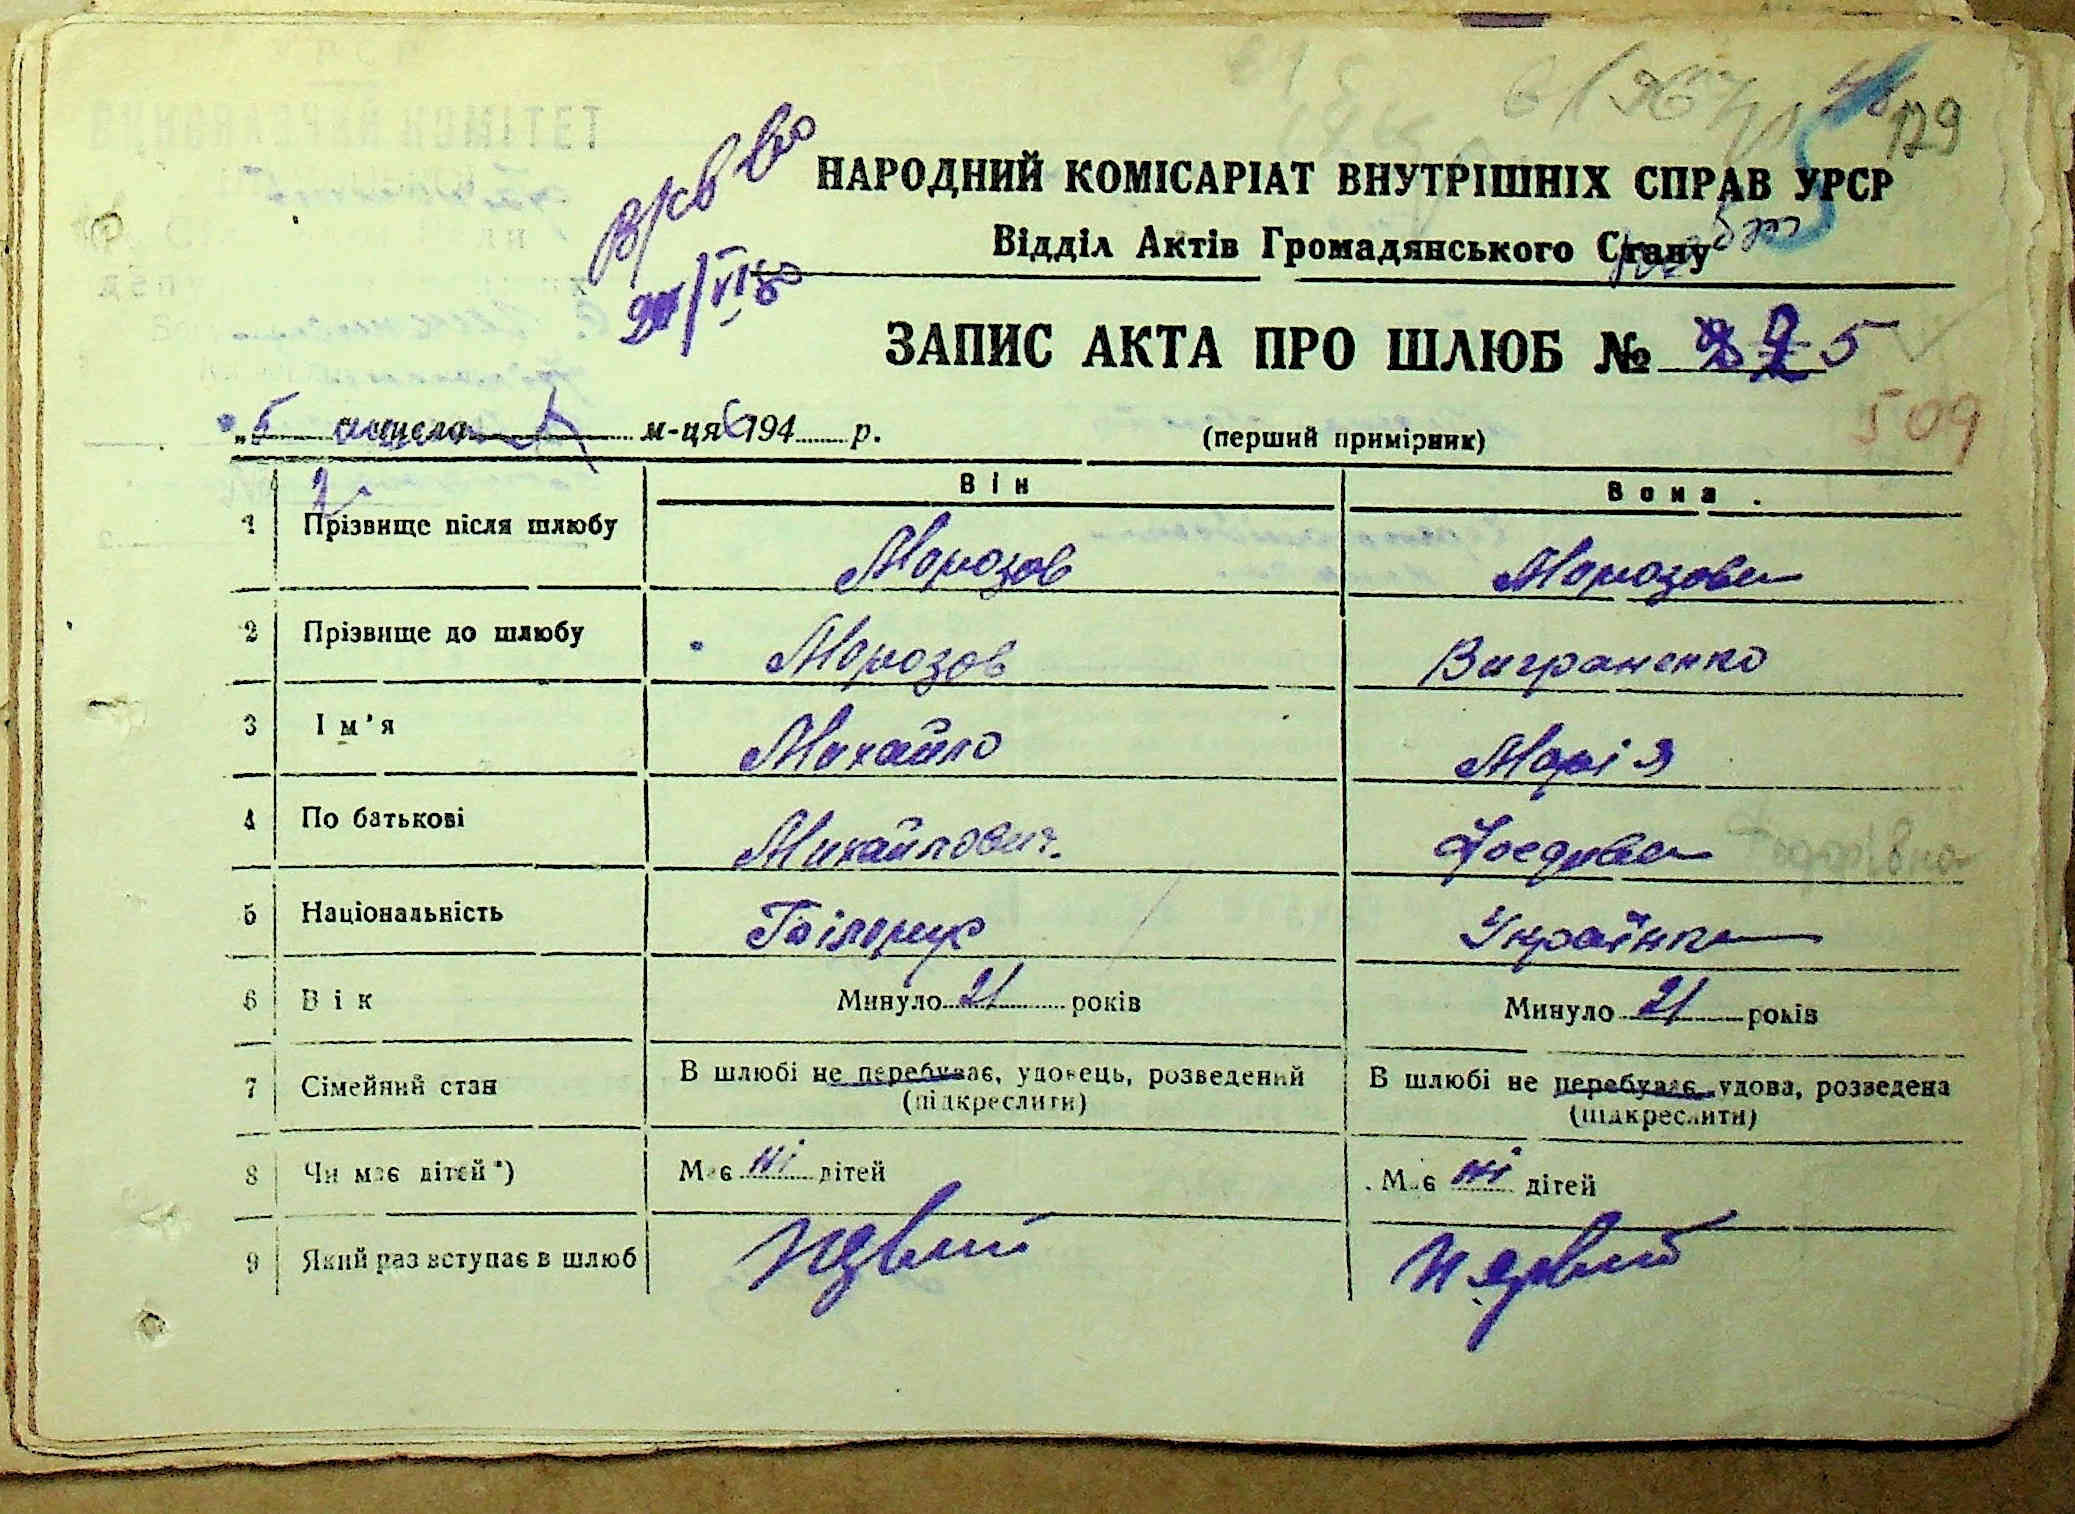 129
НАРОДНИЙ КОМІСАРІАТ ВНУТРІШНІХ СПРАВ УРСР
Відділ Актів Громадянського Стану
ЗАПИС АКТА ПРО ШЛЮБ № 5
509
„5 м-ця 194 р.
(перший примірник)
Він Вона
1 Прізвище після шлюбу Морозов Морозова
2 Прізвище до шлюбу Морозов Виграненко
3 Ім'я Михайло Марія
4 По батькові Михайлович Федорівна
5 Національність Білорус Українка
6 Вік Минуло 21 років Минуло 21 років
7 Сімейний стан В шлюбі не перебуває, удовець, розведений В шлюбі не перебуває, удова, розведена
(підкреслити) (підкреслити)
8 Чи має дітей*) Має ні дітей Має ні дітей
9 Який раз вступає в шлюб первий первий